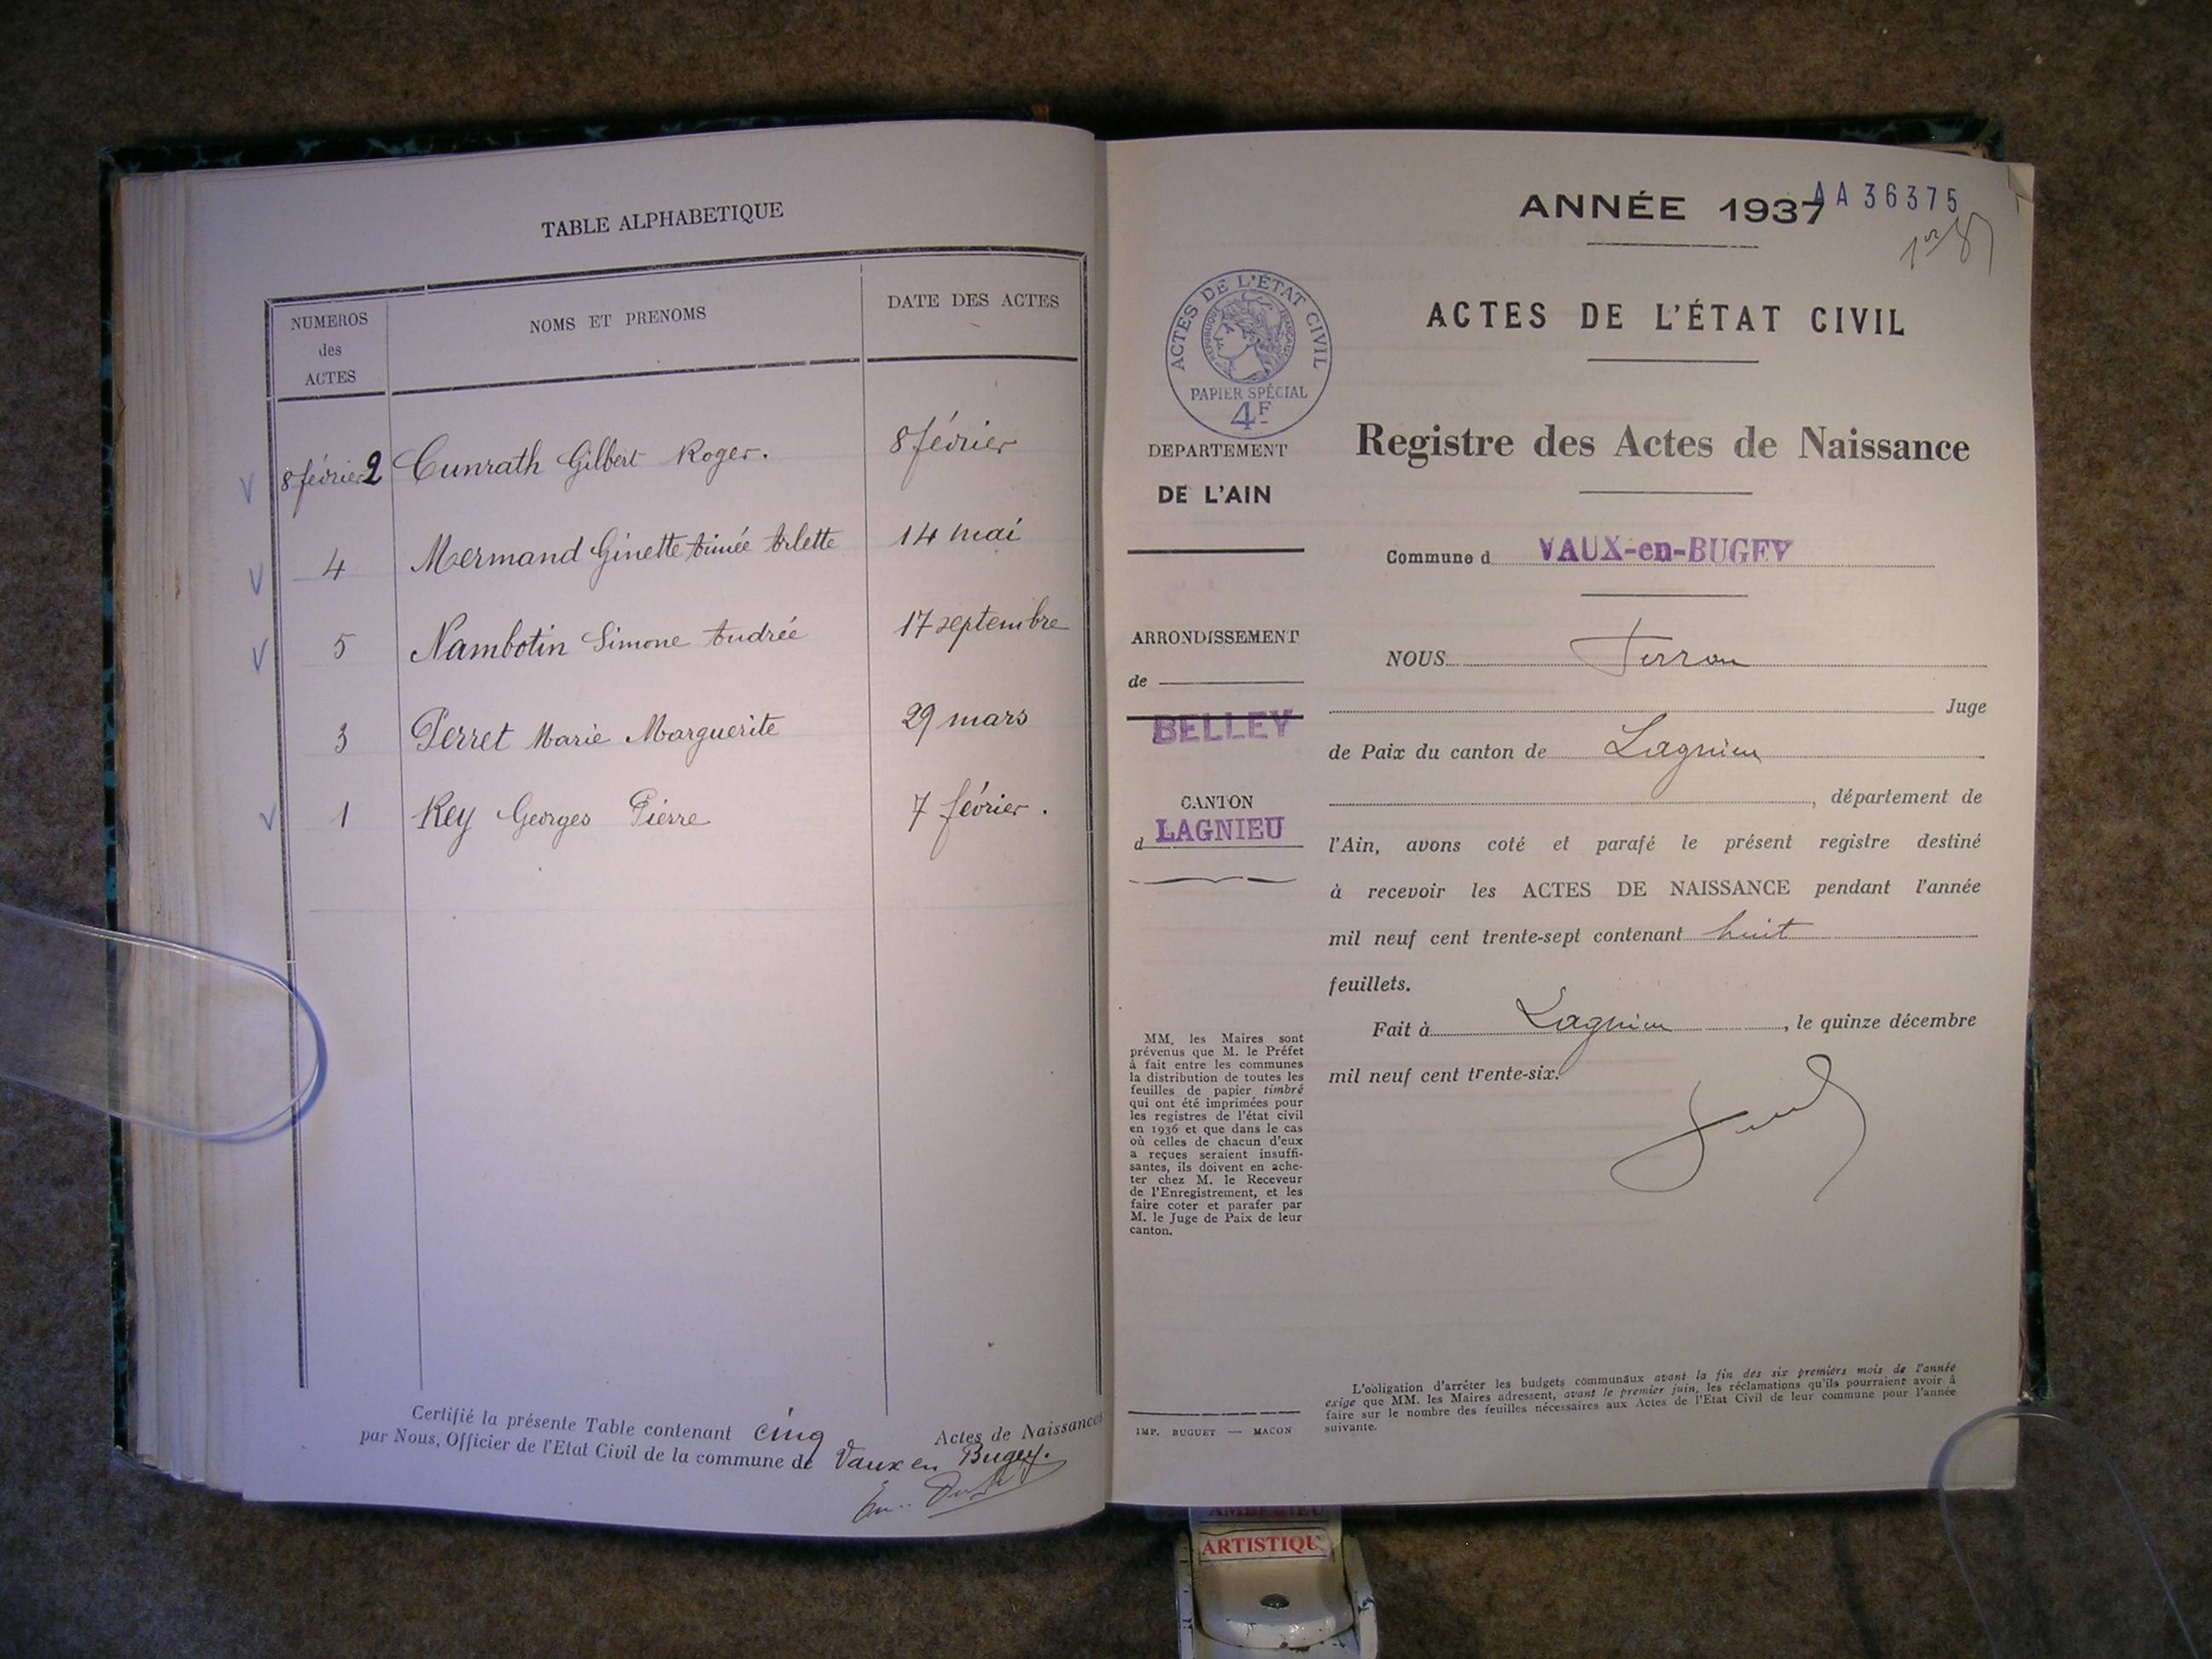 TABLE ALPHABETIQUE
NUMEROS des ACTES
NOMS ET PRENOMS
DATE DES ACTES
8 février 2 Cunrath Gilbert Roger. 8 février
4 Mermand Ginette Aimée Arlette 14 mai
5 Nambotin Simone Andrée 17 septembre
3 Perret Marie Marguerite 29 mars
1 Rey Georges Pierre 7 février.
Certifié la présente Table contenant cinq Actes de Naissances
par Nous, Officier de l'Etat Civil de la commune de Vaux en Bugey.
ANNÉE 1937
AA 36375
ACTES DE L'ÉTAT CIVIL
RÉPUBLIQUE FRANÇAISE
PAPIER SPÉCIAL
4F
DEPARTEMENT
DE L'AIN
ARRONDISSEMENT
de
BELLEY
CANTON
d LAGNIEU
MM. les Maires sont
prévenus que M. le Préfet
à fait entre les communes
la distribution de toutes les
feuilles de papier timbré
qui ont été imprimées pour
les registres de l'état civil
en 1936 et que dans le cas
où celles de chacun d'eux
a reçues seraient insuffi-
santes, ils doivent en ache-
ter chez M. le Receveur
de l'Enregistrement, et les
faire coter et parafer par
M. le Juge de Paix de leur
canton.
IMP. BUGUET — MACON
ACTES DE L'ÉTAT CIVIL
Registre des Actes de Naissance
Commune d VAUX-en-BUGEY
NOUS Ferran
Juge
de Paix du canton de Lagnieu
, département de
l'Ain, avons coté et parafé le présent registre destiné
à recevoir les ACTES DE NAISSANCE pendant l'année
mil neuf cent trente-sept contenant huit
feuillets.
Fait à Lagnieu, le quinze décembre
mil neuf cent trente-six.
L'obligation d'arrêter les budgets communaux avant la fin des six premiers mois de l'année
exige que MM. les Maires adressent, avant le premier juin, les réclamations qu'ils pourraient avoir à
faire sur le nombre des feuilles nécessaires aux Actes de l'Etat Civil de leur commune pour l'année
suivante.
ARTISTIQU